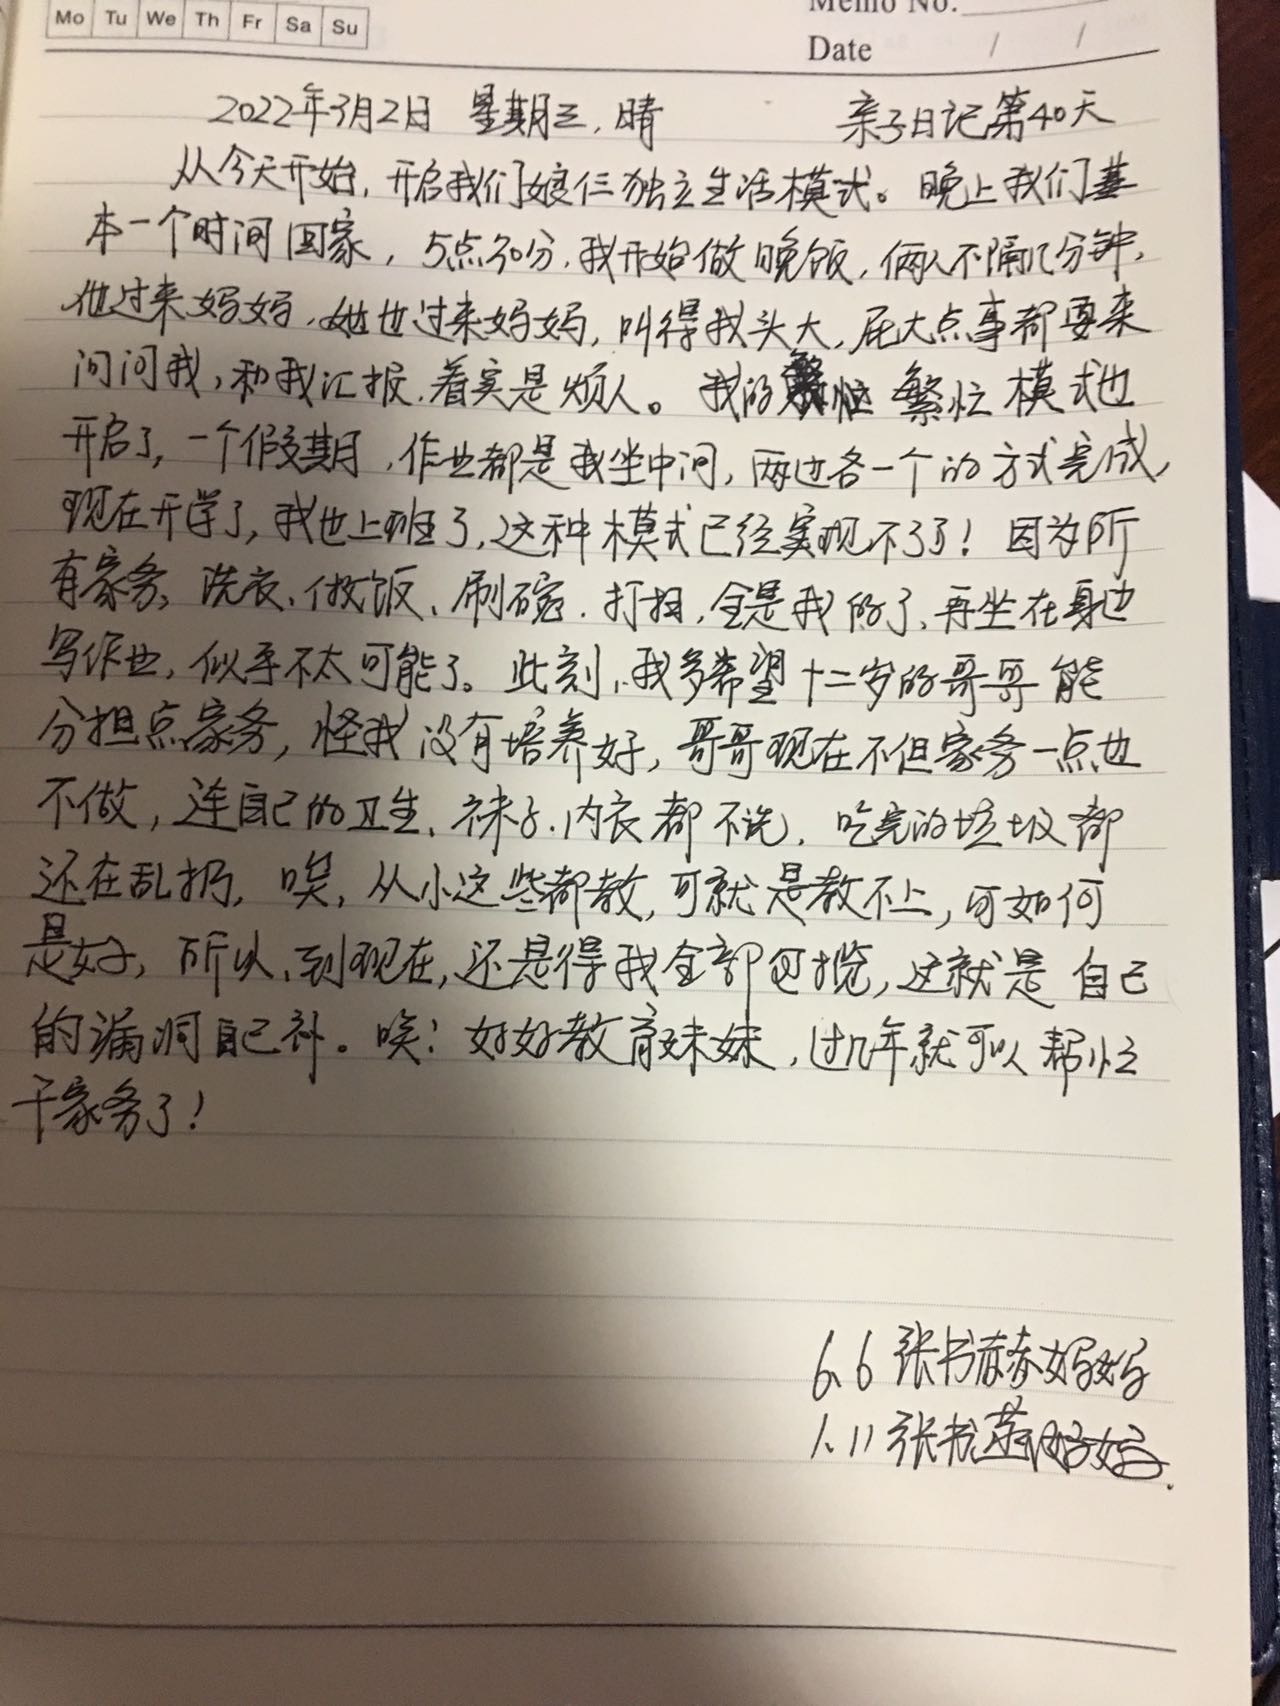 Mo Tu We Th Fr Sa Su
Memo No.
Date / /
2022年3月2日 星期三,晴 亲子日记第40天
从今天开始,开启我们娘仨独立生活模式。晚上我们基
本一个时间回家,5点30分,我开始做晚饭,俩人不隔几分钟,
他过来妈妈,她也过来妈妈,叫得我头大,屁大点事都要来
问问我,和我汇报,着实是烦人。我的 繁忙模式也
开启了,一个假期,作业都是我坐中间,两边各一个的方式完成,
现在开学了,我也上班了,这种模式已经实现不了了!因为所
有家务,洗衣、做饭、刷碗、打扫,全是我的了,再坐在身边
写作业,似乎不太可能了。此刻,我多希望十二岁的哥哥能
分担点家务,怪我没有培养好,哥哥现在不但家务一点也
不做,连自己的卫生、袜子、内衣都不洗,吃完的垃圾都
还在乱扔,唉,从小这些都教,可就是教不上,可如何
是好,所以,到现在,还是得我全部包揽,这就是自己
的漏洞自己补。唉!好好教育妹妹,过几年就可以帮忙
干家务了!
6.6 张书赫妈妈
1.11 张书 妈妈.